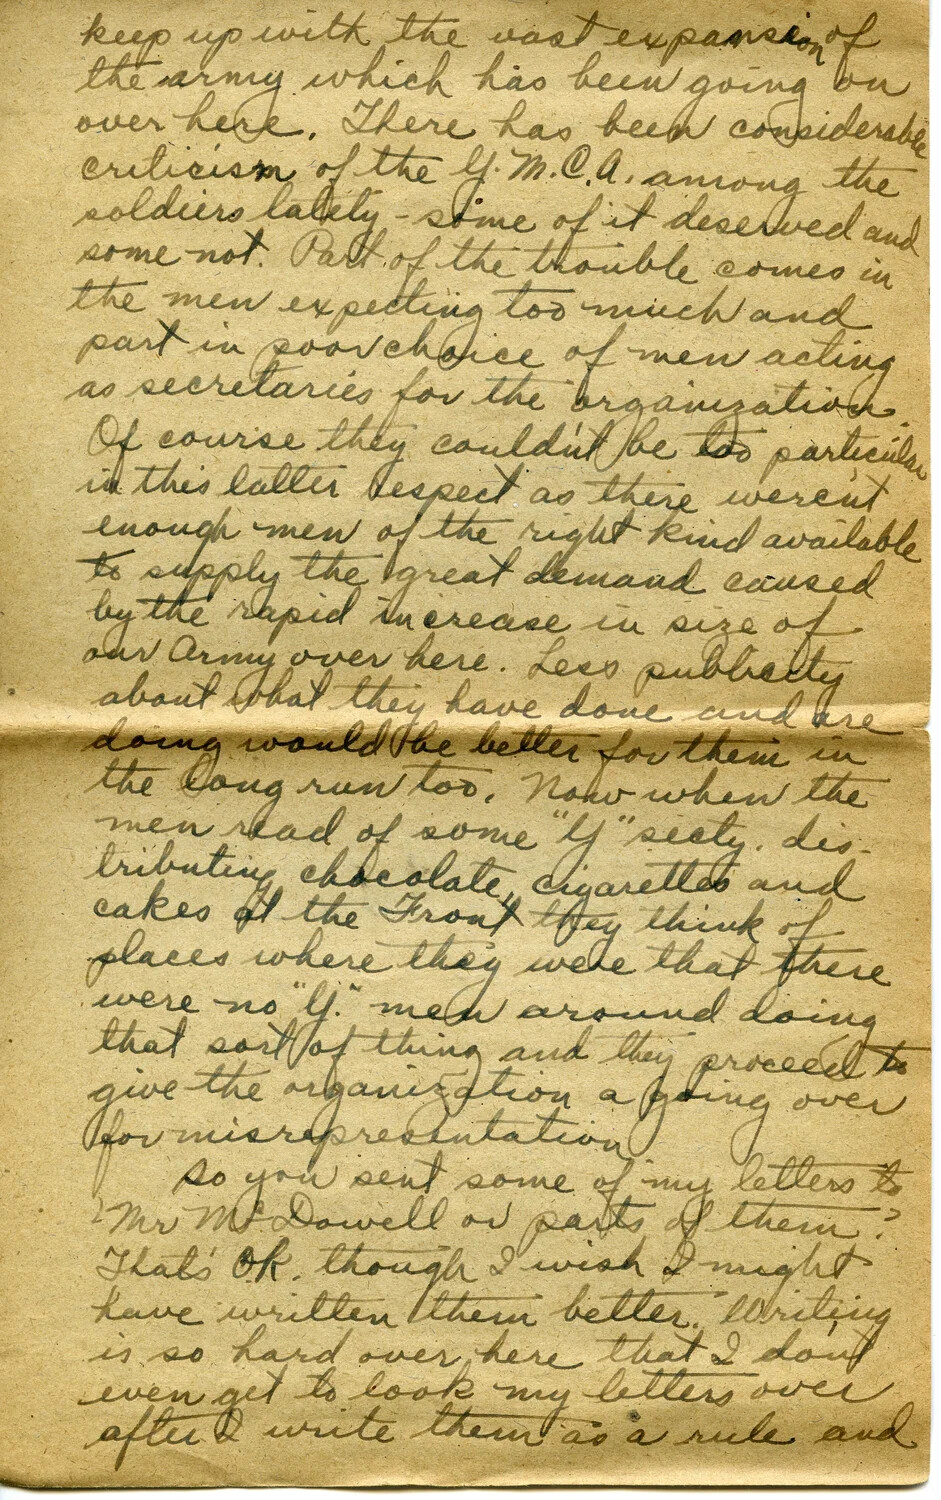 keep up with the vast expansion of
the army which has been going on
over here. There has been considerable
criticism of the Y.M.C.A. among the
soldiers lately - some of it deserved and
some not. Part of the trouble comes in
the men expecting too much and
part in poor choice of men acting
as secretaries for the organization.
Of course they couldn't be too particular
in this latter respect as there weren't
enough men of the right kind available
to supply the great demand caused
by the rapid increase in size of
our Army over here. Less publicity
about what they have done and are
doing would be better for them in
the long run too. Now when the
men read of some "Y" secty. dis-
tributing chocolate, cigarettes and
cakes at the Front they think of
places where they were that there
were no "Y." men around doing
that sort of thing and they proceed to
give the organization a going over
for misrepresentation
So you sent some of my letters to
Mr McDowell or parts of them?
That's OK. though I wish I might
have written them better. Writing
is so hard over here that I don't
even get to look my letters over
after I write them as a rule and